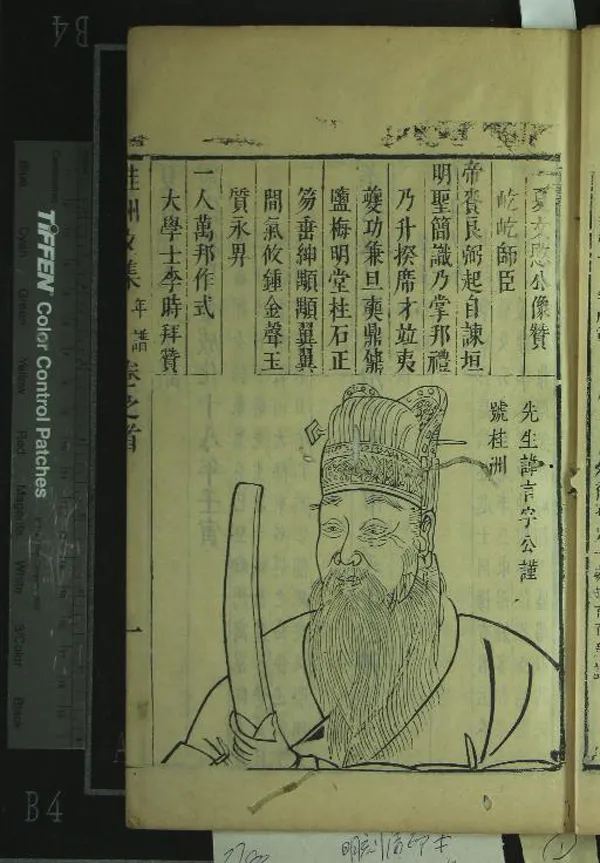 夏文愍公像贊
屹屹師臣
帝賚良弼起自諫垣
明聖簡識乃掌邦禮
乃升揆席才竝夷
夔功兼旦奭鼎鼐
鹽梅明堂柱石正
笏垂紳顒顒翼翼
間氣攸鍾金聲玉
質永畀
一人萬邦作式
大學士李時拜贊
先生諱言字公謹
號桂洲
桂洲文集 年譜 卷之首
一
TIFFEN Color Control Patches
Blue Cyan Green Yellow Red Magenta White 3/Color Black
B4
B4
明刻清印本